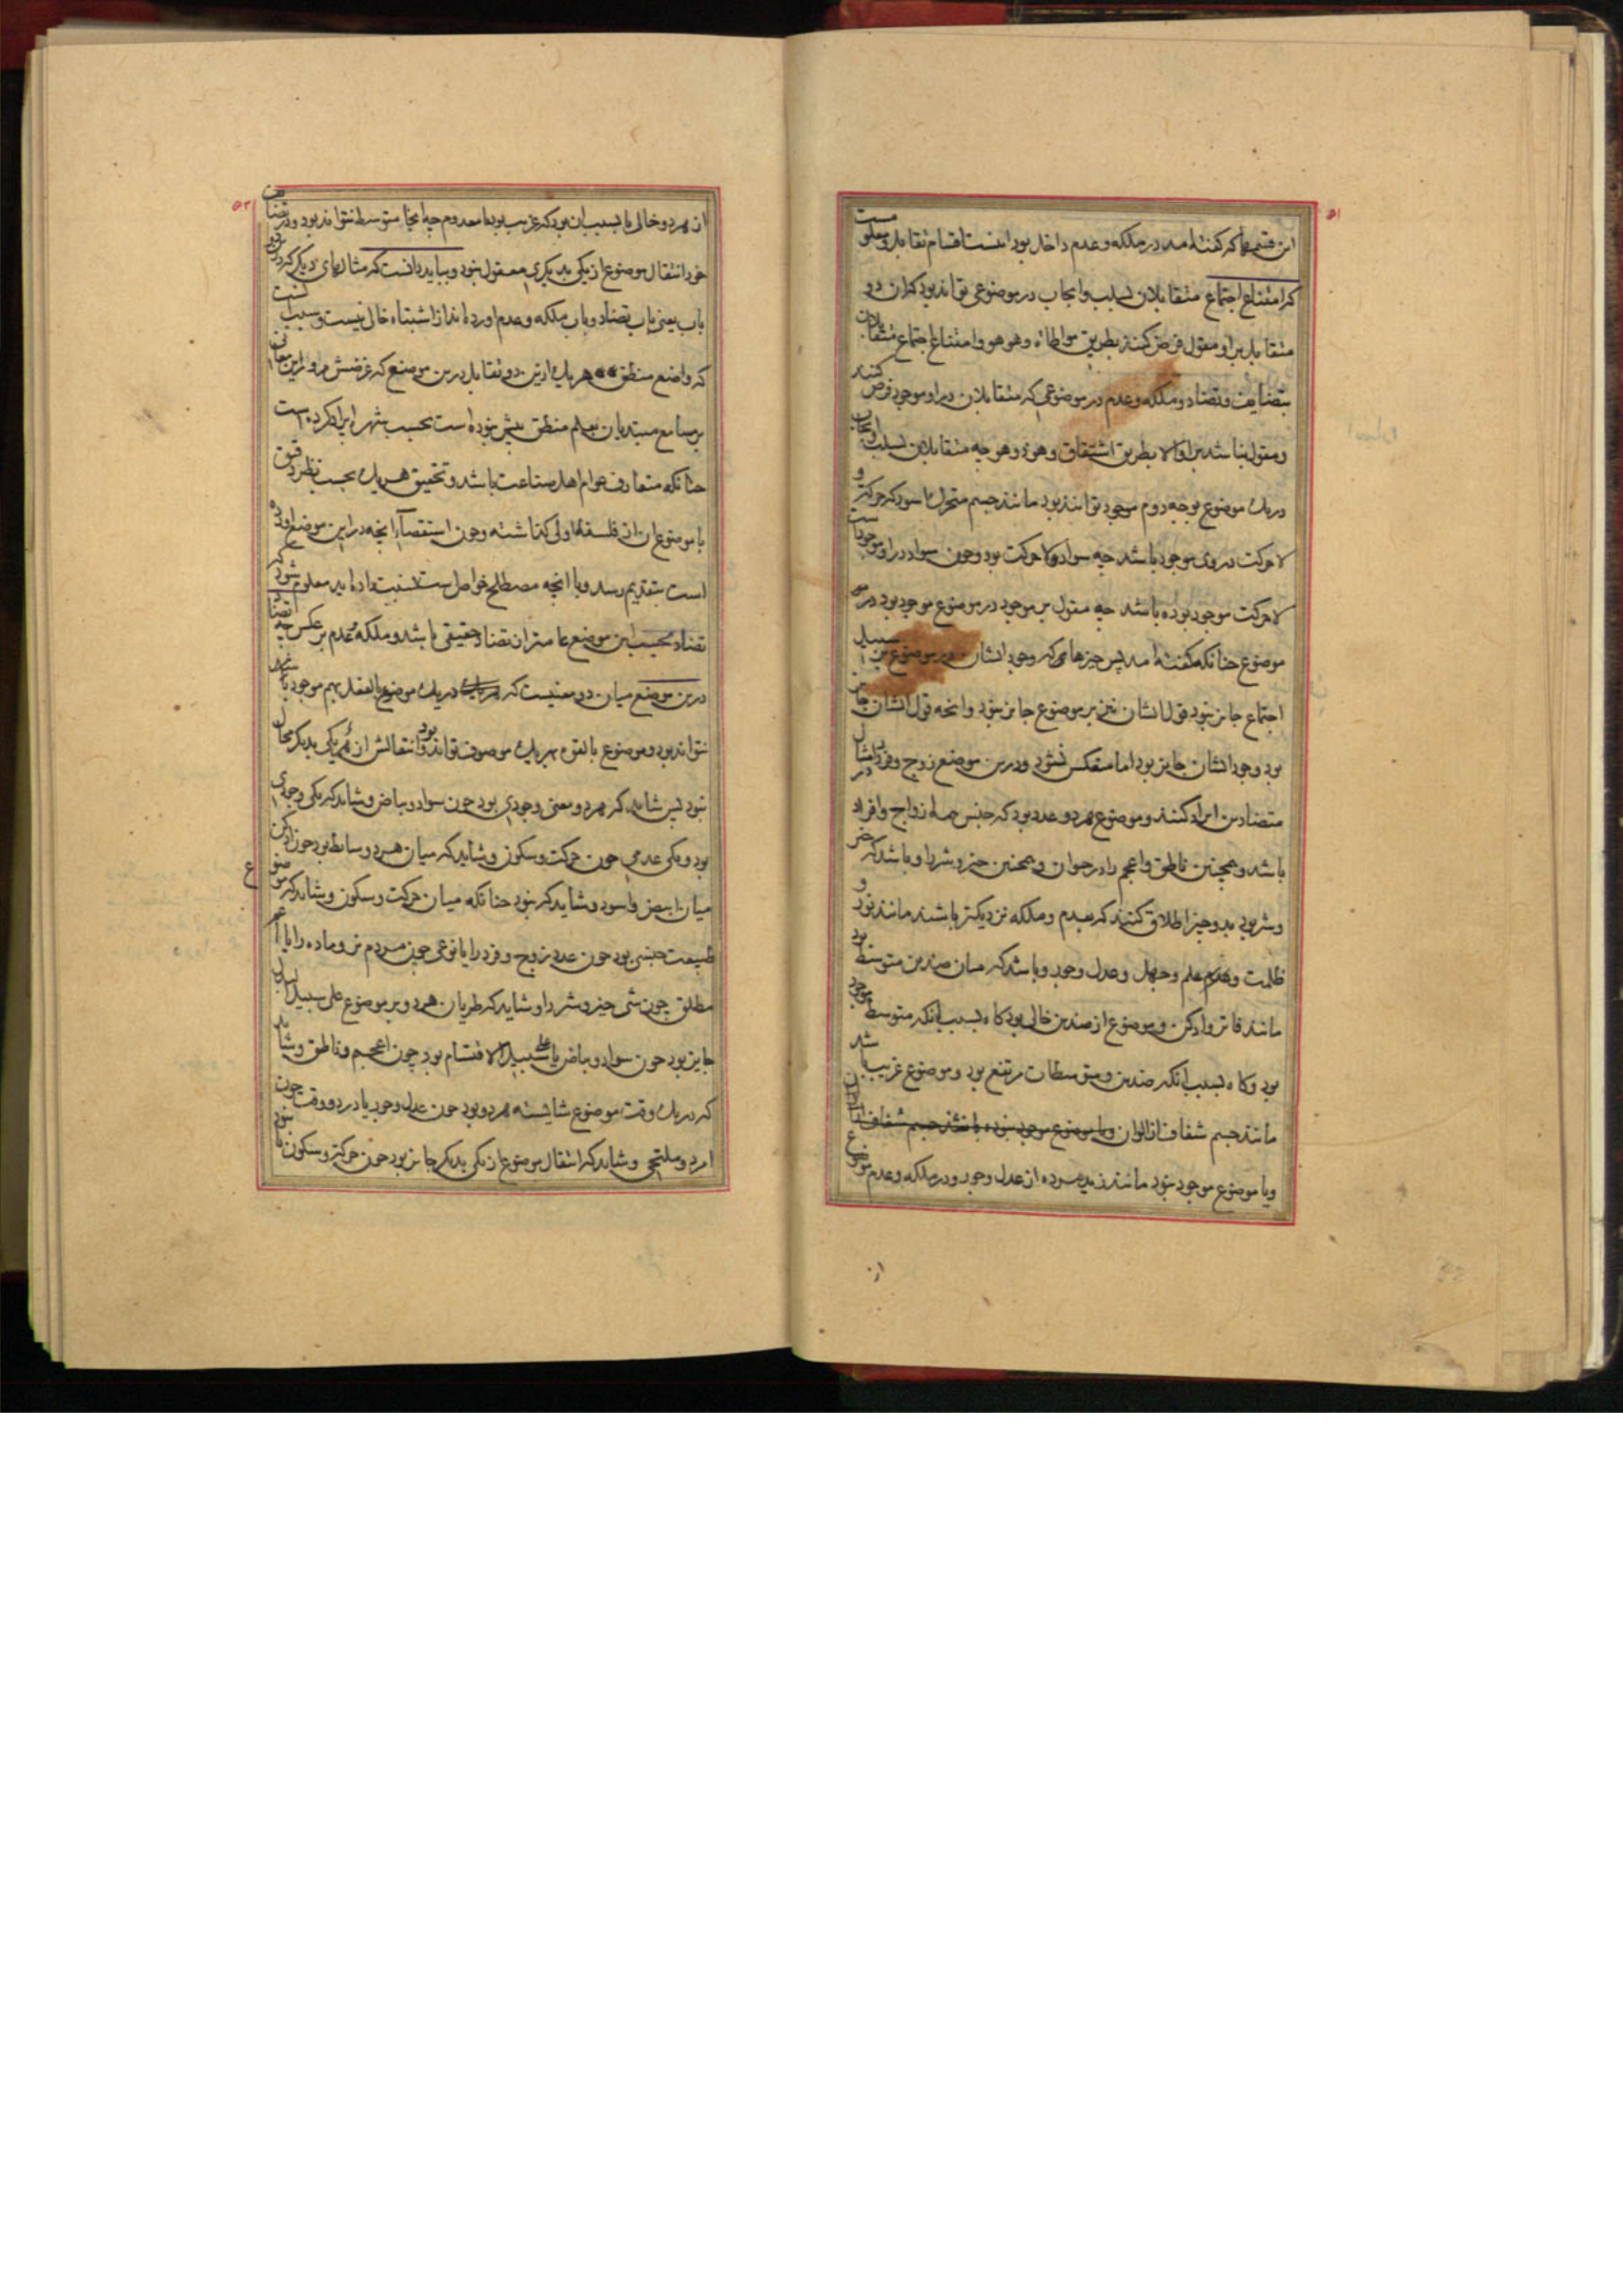 ۵۱
این قسمها که گفته امد در ملکه و عدم داخل بود اینست اقسام تقابل و معلومست
که امتناع اجتماع متقابلان بسلب و ایجاب در موضوعی تواند بود کان دو
متقابل برا و مقول فرض کنند بطریق مواطاة و هو هو و امتناع اجتماع متقابلان
بتضایف و تضاد و ملکه و عدم در موضوعی که متقابلان درا و موجود فرض کنند
و مقول نباشد برا و الا بطریق اشتقاق و هو ذو هو چه متقابلان بسلب و ایجاب
در یک موضوع بوجه دوم موجود توانند بود مانند جسم متحرک اسود که حرکت و
لا حرکت در وی موجود باشد چه سواد لا حرکت بود و چون سواد در او موجود است
لا حرکت موجود بوده باشد چه مقول بر موجود در موضوع موجود بود در
موضوع چنانکه گفته امد پس چیزهائی که وجود ایشان در موضوع بر سبیل
اجتماع جایز نبود قول ایشان نیز بر موضوع جایز نبود و انچه قول ایشان جایز
بود وجود ایشان جایز بود اما منعکس نشود و درین موضع زوج و فرد را مثال
متضادین ایراد کنند و موضوع هر دو عدد بود که جنس همه ازواج و افراد
باشد و همچنین ناطق و اعجم را در حیوان و همچنین خیر و شر را و باشد که خیر
و شر بود بدو چیز اطلاق کنند که بعدم و ملکه نزدیکتر باشند مانند نور و
ظلمت و علم و جهل و عدل و جور و باشد که میان ضدین متوسط بود
مانند فاتر و ادکن و موضوع از ضدین خالی بود گاه بسبب انکه متوسط موجود
بود و گاه بسبب انکه ضدین و متوسطات مرتفع بود و موضوع غریب باشد
مانند جسم شفاف از الوان
و یا موضوع موجود نبود مانند زید مرده از عدل و جور و در ملکه و عدم موضوع
از
۵۲
از هر دو خالی یا بسبب ان بود که غریب بود یا معدوم چه اینجا متوسط نتواند بود و در تضایف
خود انتقال موضوع از یکی بدیگری معقول نبود و بباید دانست که مثالهای دیگر که درین دو
باب یعنی باب تضاد و باب ملکه و عدم اورده اند از اشتباه خالی نیست و سبب انست
که واضع منطق هر یک ازین دو تقابل درین موضع که غرضش مرور این معانی
بر مسامع مبتدیان بعلم منطق بیش نبوده است بحسب شهرت ایراد کرده است
چنانکه متعارف عوام اهل صناعت باشد و تحقیق هر یک بحسب نظر دقیق
با موضوع ان از فلسفه اولی گذاشته و چون استقصآء انچه در این موضع اورده
است بتقدیم رسد و با انچه مصطلح خواص است نسبت داده اید معلوم شود که
تضاد بحسب این موضع عامتر از تضاد حقیقی باشد و ملکه و عدم بر عکس چه تضاد
درین موضع میان دو معنیست که در یک موضوع بالفعل بهم موجود
نتواند بود و موضوع بالقوه بهر یک موصوف تواند بود و انتقالش از هر یکی بدیگر محال
نبود پس شاید که هر دو معنی وجودی بود چون سواد و بیاض و شاید که یکی وجودی
بود و یکی عدمی چون حرکت و سکون و شاید که میان هر دو وسایط بود چون ادکن
میان ابیض و اسود و شاید که نبود چنانکه میان حرکت و سکون و شاید که موضوع
طبیعت جنسی بود چون عدد زوج و فرد را یا نوعی چون مردم نر و ماده را یا اعم
مطلق چون شی خیر و شر را و شاید که طریان هر دو بر موضوع علی سبیل البدل
جایز بود چون سواد و بیاض یا علی سبیل الاقتسام بود چون اعجم و ناطق و شاید
که در یک وقت موضوع شایسته هر دو بود چون عدل و جور یا در دو وقت چون
امرد و ملتحی و شاید که انتقال موضوع از یکی بدیگر جایز بود چون حرکت و سکون یا نبود